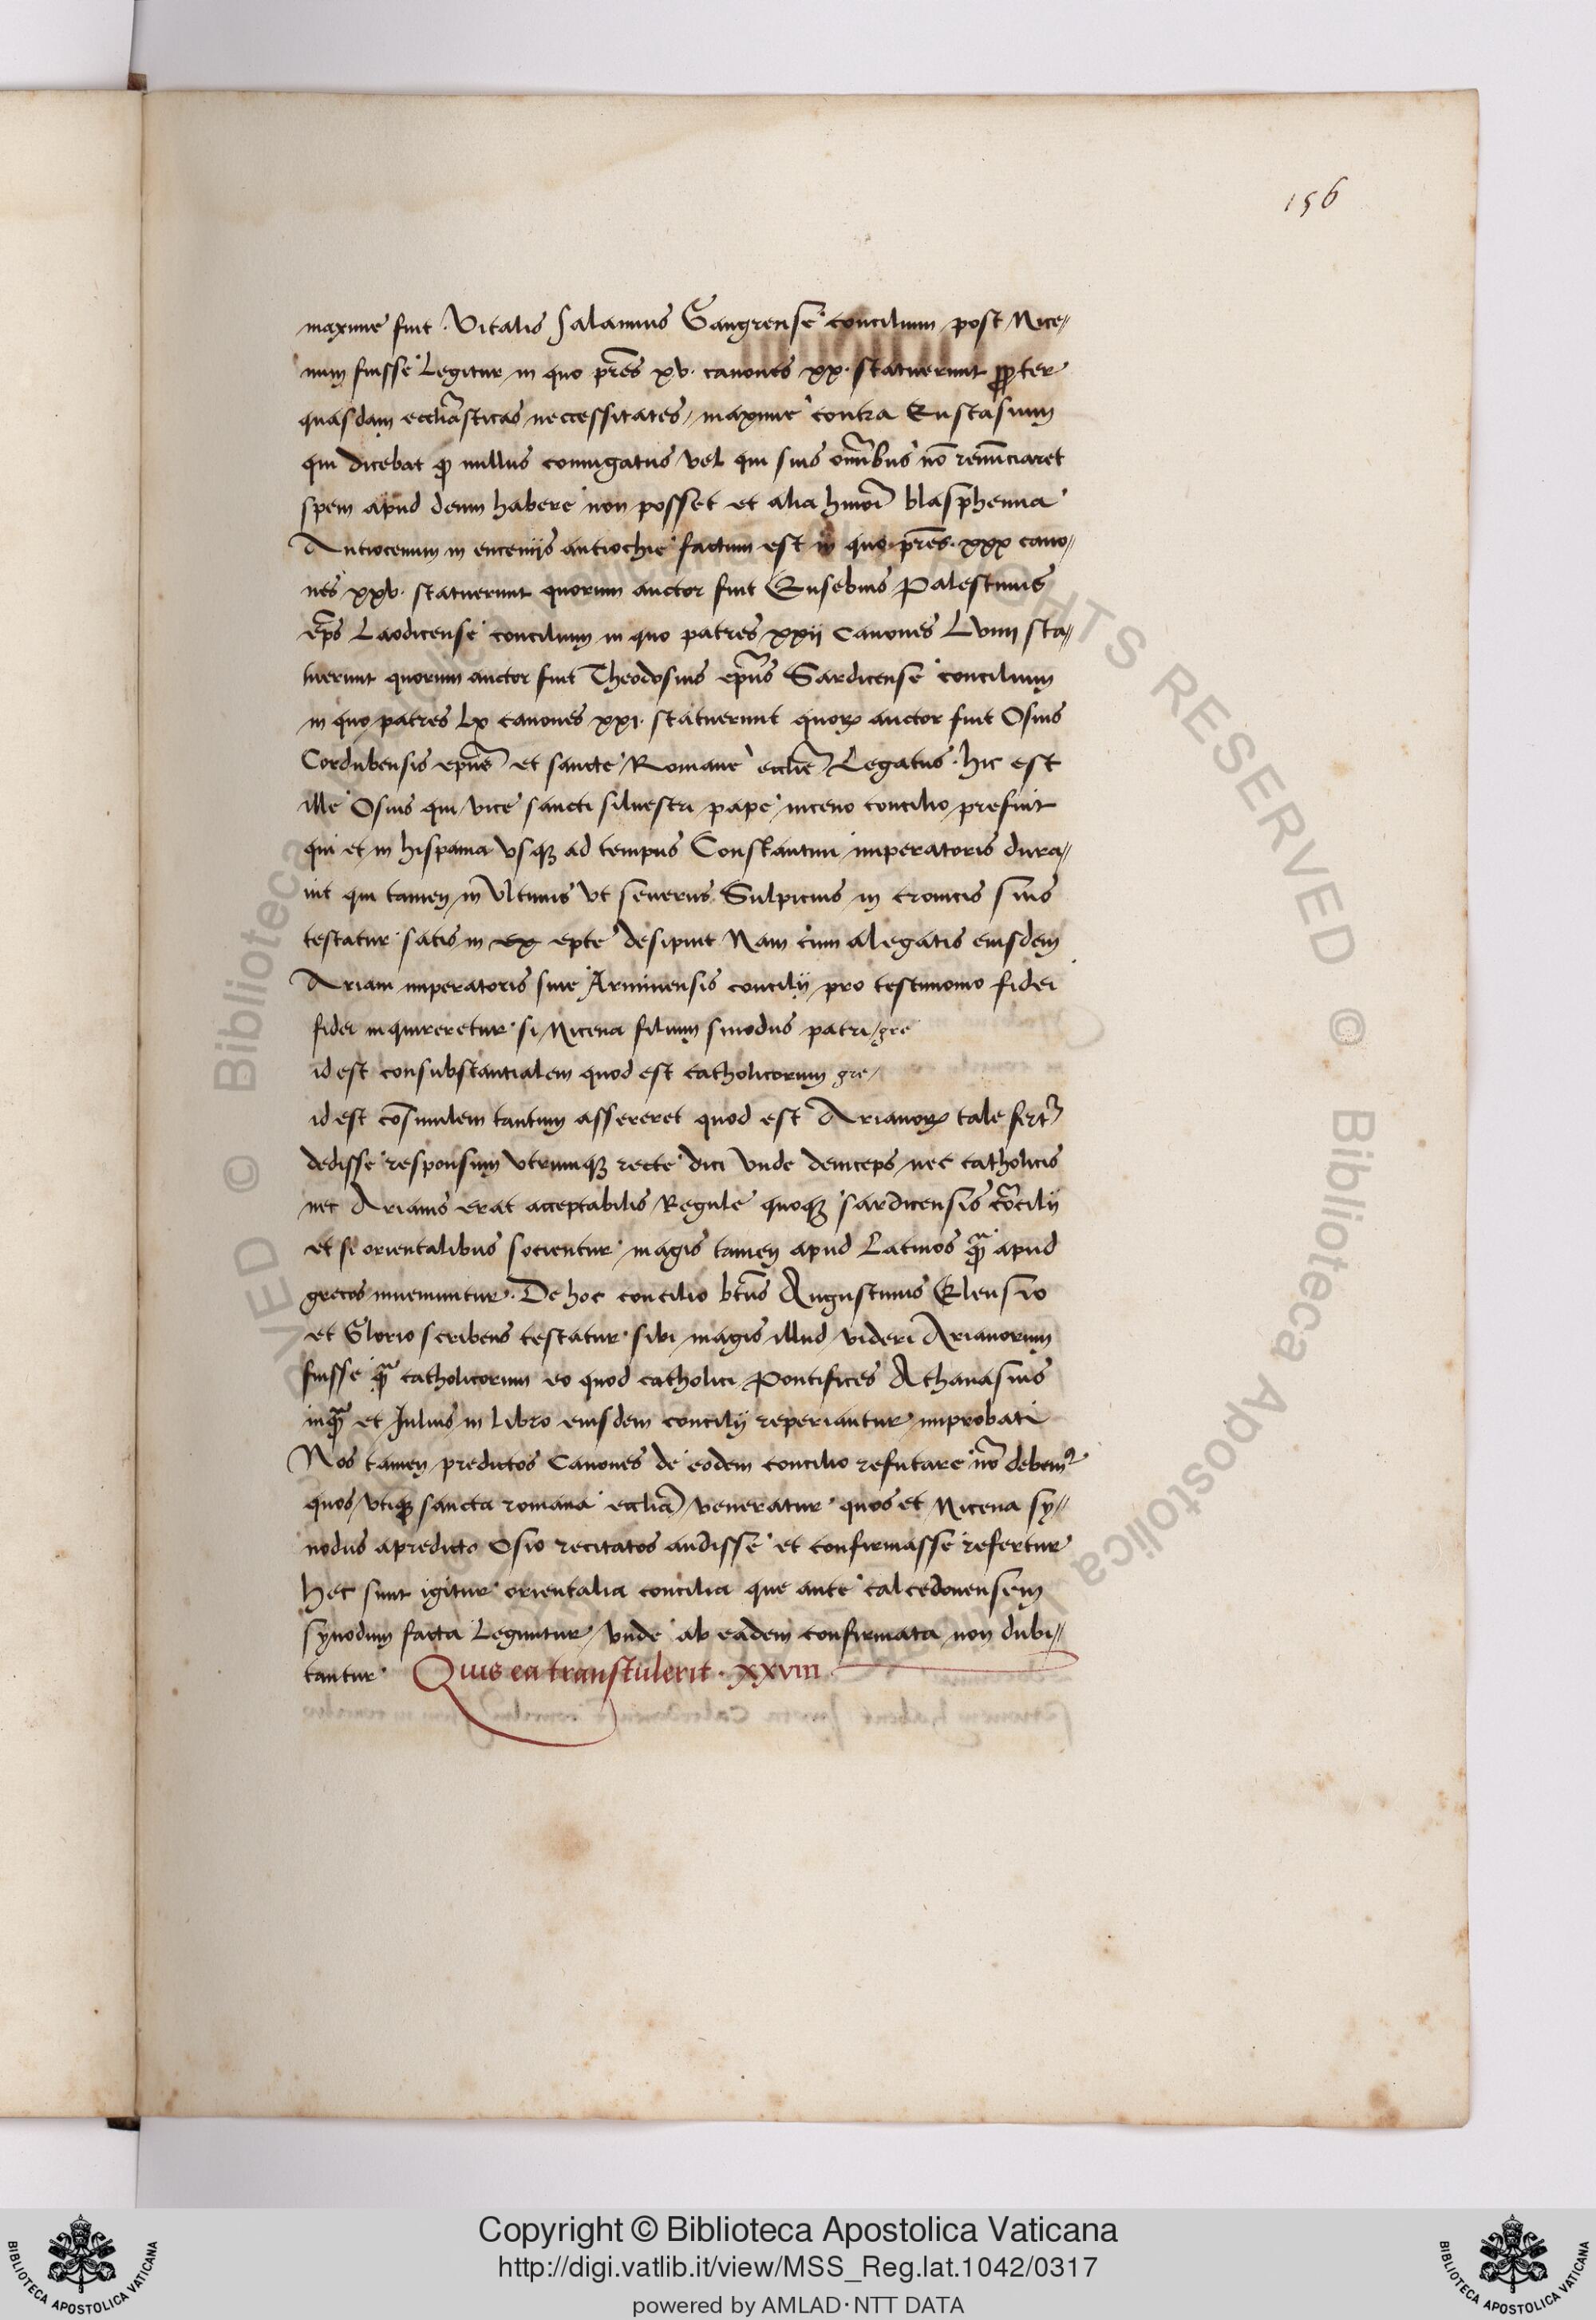 156
maxime fuit. Vitalis Salamius Gangrense concilium post Nice//
num fuisse Legitur in quo pr̄es xv. canones xx. statuerunt ꝓpter
quasdam eccliãsticas neccessitates, maxime contra Eustasium
qui dicebat ꝙ nullus coniugatus vel qui suis om̄ibus nō renūciaret
spem apud deum habere non posset et alia hmōi blasphemia
Antiocenum in encenijs antiochie factum est in quo pr̄es. xxx cano//
nes xxv. statuerunt quorum auctor fuit Eusebius Palestinus
ep̄s Laodicense concilium in quo patres xxij Canones Lviiij sta//
tuerunt quorum auctor fuit Theodosius ep̄us Sardicense concilium
in quo patres Lx canones xxi. statuerunt quoꝝ auctor fuit Osius
Cordubensis ep̄us et sancte Romane ecclie̅ Legatus. hic est
ille Osius qui vice sancti siluestri pape niceno concilio prefuit
qui et in hispania vsqꝫ ad tempus Constantini imperatoris dura//
uit qui tamen in Vltimis vt seuerus Sulpicius in cronicis suis
testatur satis in ex epte desipuit Nam cum alegatis eiusdem
Ariani imperatoris siue Arminensis concilij pro testimonio fidei
fidei inquireretur si Nicena filium sinodus patri /gre
id est consubstantialem quod est catholicorum gre/
id est cōsimilem tantum assereret quod est Arianoꝝ tale fert͛
dedisse responsum vtrumqꝫ recte dici vnde deinceps nec catholicis
nec Arianis erat acceptabilis Regule quoqꝫ sardicensis cōcilij
et si orientalibus socientur magis tamen apud Latinos ꝙ̄ apud
grecos inueniuntur. De hoc concilio bt̄us Augustinus Eleusio
et Glorio scribens testatur sibi magis illud videri Arianorum
fuisse ꝙ̄ catholicorum eo quod catholici Pontifices Athanasius
inꝙ̄ et Iulius in Libro eiusdem concilij reperiantur improbati
Nos tamen predictos Canones de eodem concilio refutare nō debemꝰ
quos vtiqꝫ sancta romana eccliā veneratur quos et Nicena sy//
nodus apredicto Osio recitatos audisse et confirmasse refertur
Hec sunt igitur orientalia concilia que ante calcedonensem
synodum facta Leguntur, vnde ab eadem confirmata non dubi//
tantur Quis ea transtulerit. xxviii
Copyright © Biblioteca Apostolica Vaticana
http://digi.vatlib.it/view/MSS_Reg.lat.1042/0317
powered by AMLAD·NTT DATA